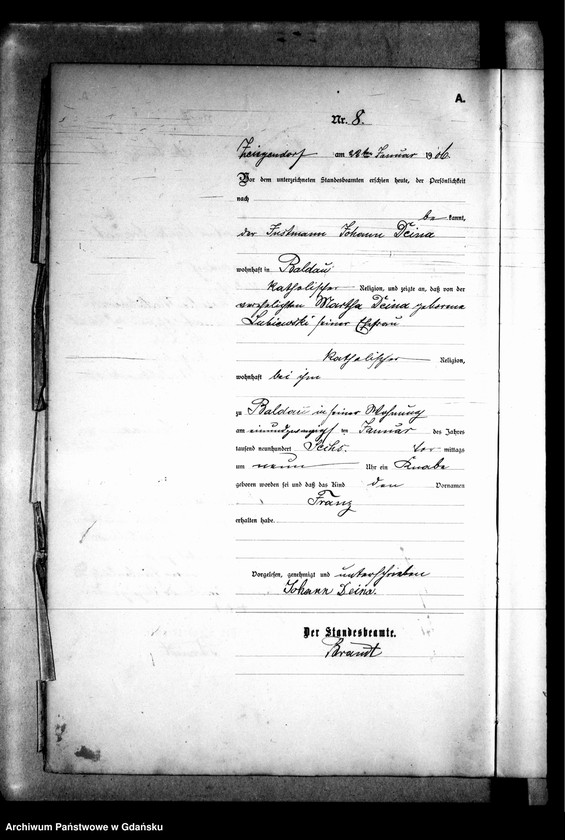 A.
Nr. 8.
am 22ten Januar 1906.
Vor dem unterzeichneten Standesbeamten erschien heute, der Persönlichkeit
nach
bekannt,
der Instmann Johann Deina
wohnhaft in Baldau
katholischer Religion, und zeigte an, daß von der
verehelichten Martha Deina geborene
Lubiewski seiner Ehefrau
katholischer Religion,
wohnhaft bei ihm
zu Baldau in seiner Wohnung
am einundzwanzigsten Januar des Jahres
tausend neunhundert Sechs vor mittags
um neun Uhr ein Knabe
geboren worden sei und daß das Kind den Vornamen
Franz
erhalten habe.
Vorgelesen, genehmigt und unterschrieben
Johann Deina.
Der Standesbeamte.
Brandt
Archiwum Państwowe w Gdańsku